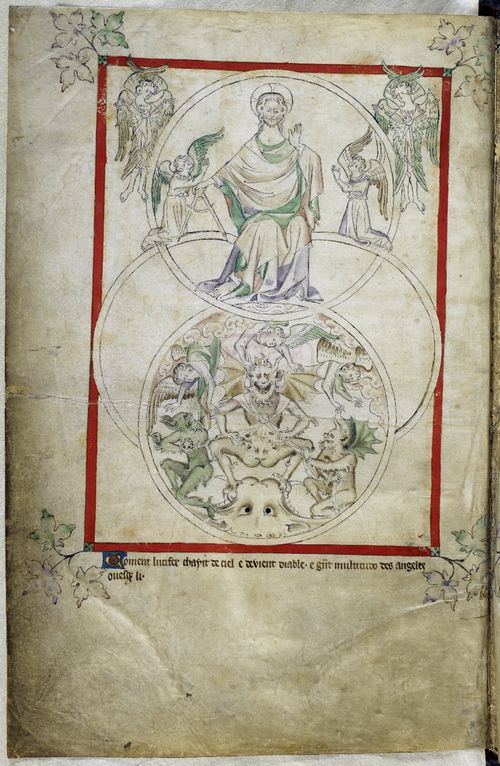 Coment lucifer chayit de ciel e devient diable · e g̃nt multitudo des angeles
ovesqz li ·